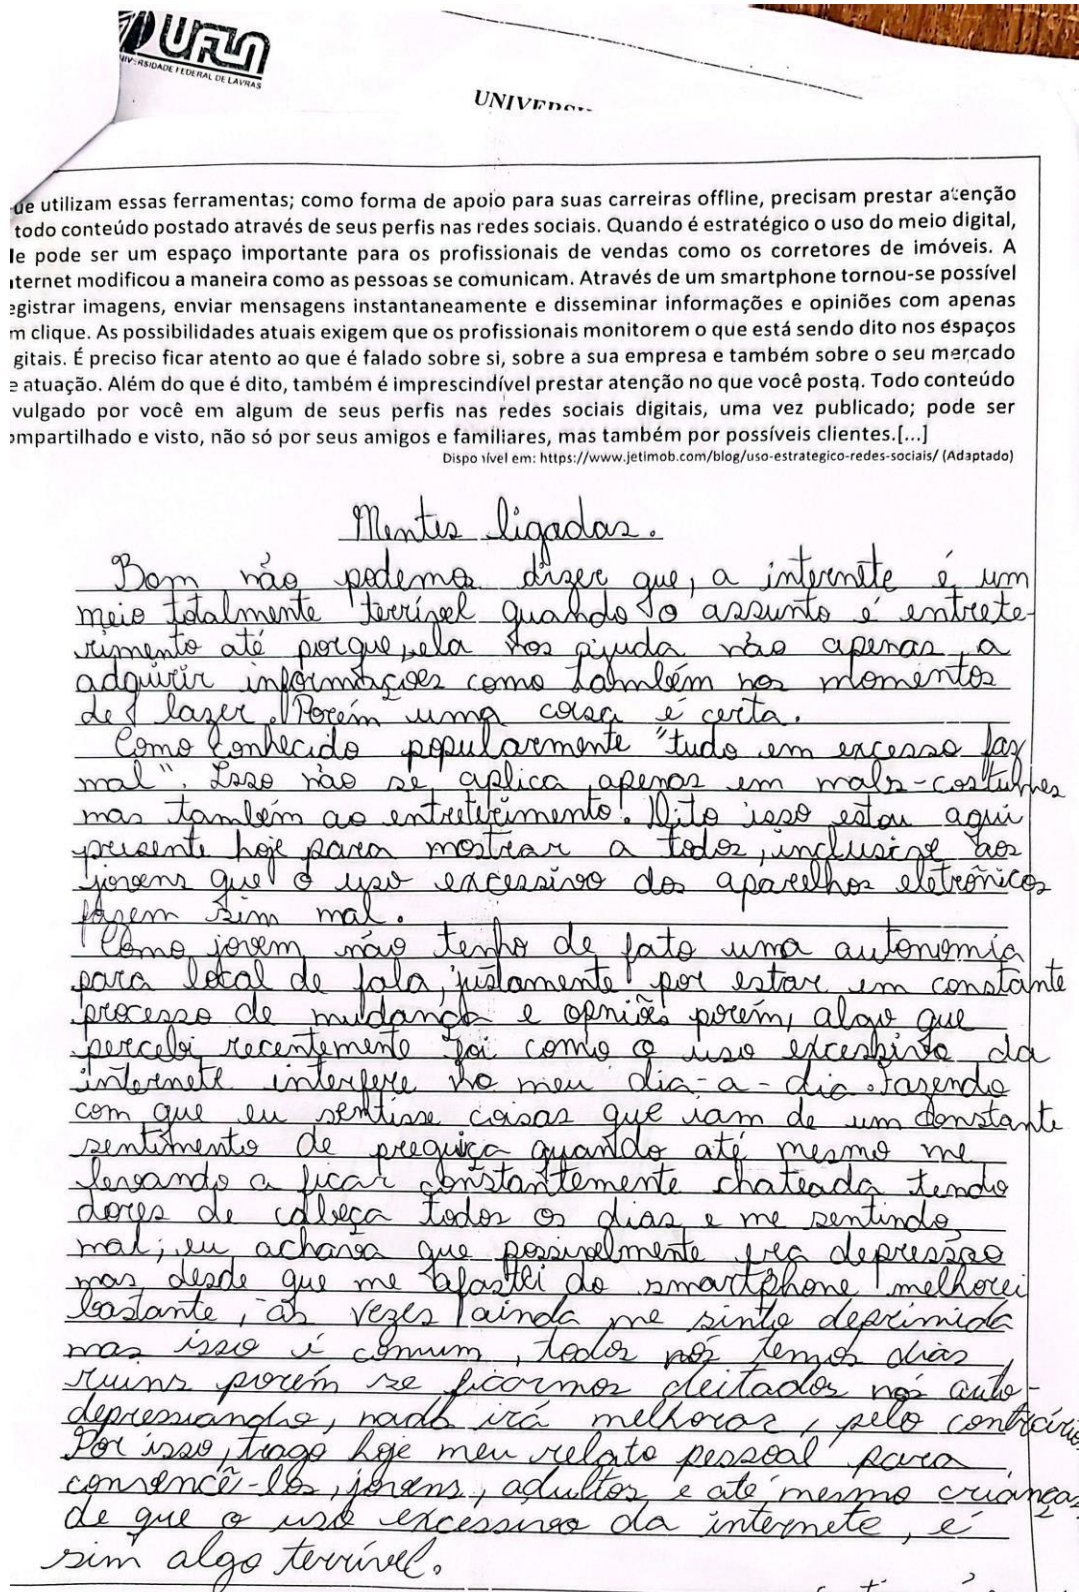 UFLA
UNIVERSIDADE FEDERAL DE LAVRAS
UNIVERSI
ue utilizam essas ferramentas; como forma de apoio para suas carreiras offline, precisam prestar atenção
todo conteúdo postado através de seus perfis nas redes sociais. Quando é estratégico o uso do meio digital,
le pode ser um espaço importante para os profissionais de vendas como os corretores de imóveis. A
nternet modificou a maneira como as pessoas se comunicam. Através de um smartphone tornou-se possível
egistrar imagens, enviar mensagens instantaneamente e disseminar informações e opiniões com apenas
m clique. As possibilidades atuais exigem que os profissionais monitorem o que está sendo dito nos espaços
gitais. É preciso ficar atento ao que é falado sobre si, sobre a sua empresa e também sobre o seu mercado
e atuação. Além do que é dito, também é imprescindível prestar atenção no que você posta. Todo conteúdo
vulgado por você em algum de seus perfis nas redes sociais digitais, uma vez publicado; pode ser
ompartilhado e visto, não só por seus amigos e familiares, mas também por possíveis clientes.[...]
Disponível em: https://www.jetimob.com/blog/uso-estrategico-redes-sociais/ (Adaptado)
Mentes ligadas.
Bom não podemos dizer que, a internete é um
meio totalmente terrível quando o assunto é entrete-
rimento até porque, ela nos ajuda não apenas a
adquirir informações como também nos momentos
de lazer. Porém uma coisa é certa.
Como conhecido popularmente "tudo em excesso faz
mal". Isso não se aplica apenas em mals-costumes
mas também ao entreterimento. Dito isso estou aqui
presente hoje para mostrar a todos, inclusive aos
jovens que o uso excessivo dos aparelhos eletrônicos
fazem sim mal.
Como jovem não tenho de fato uma autonomia
para local de fala, justamente por estar em constante
processo de mudança e opniões porém, algo que
percebi recentemente foi como o uso excessivo da
internete interfere no meu dia-a-dia. Fazendo
com que eu sentisse coisas que iam de um constante
sentimento de preguiça quando até mesmo me
levando a ficar constantemente chateada tendo
dores de cabeça todos os dias e me sentindo
mal; eu achava que possivelmente era depressão
mas desde que me afastei do smartphone melhorei
bastante, às vezes ainda me sinto deprimida
mas isso é comum, todos nós temos dias
ruins porém se ficarmos deitados nos auto-
depressiando, nada irá melhorar, pelo contrário,
Por isso, trago hoje meu relato pessoal para
convencê-los, jovens, adultos e até mesmo crianças,
de que o uso excessivo da internete, é
sim algo terrível.